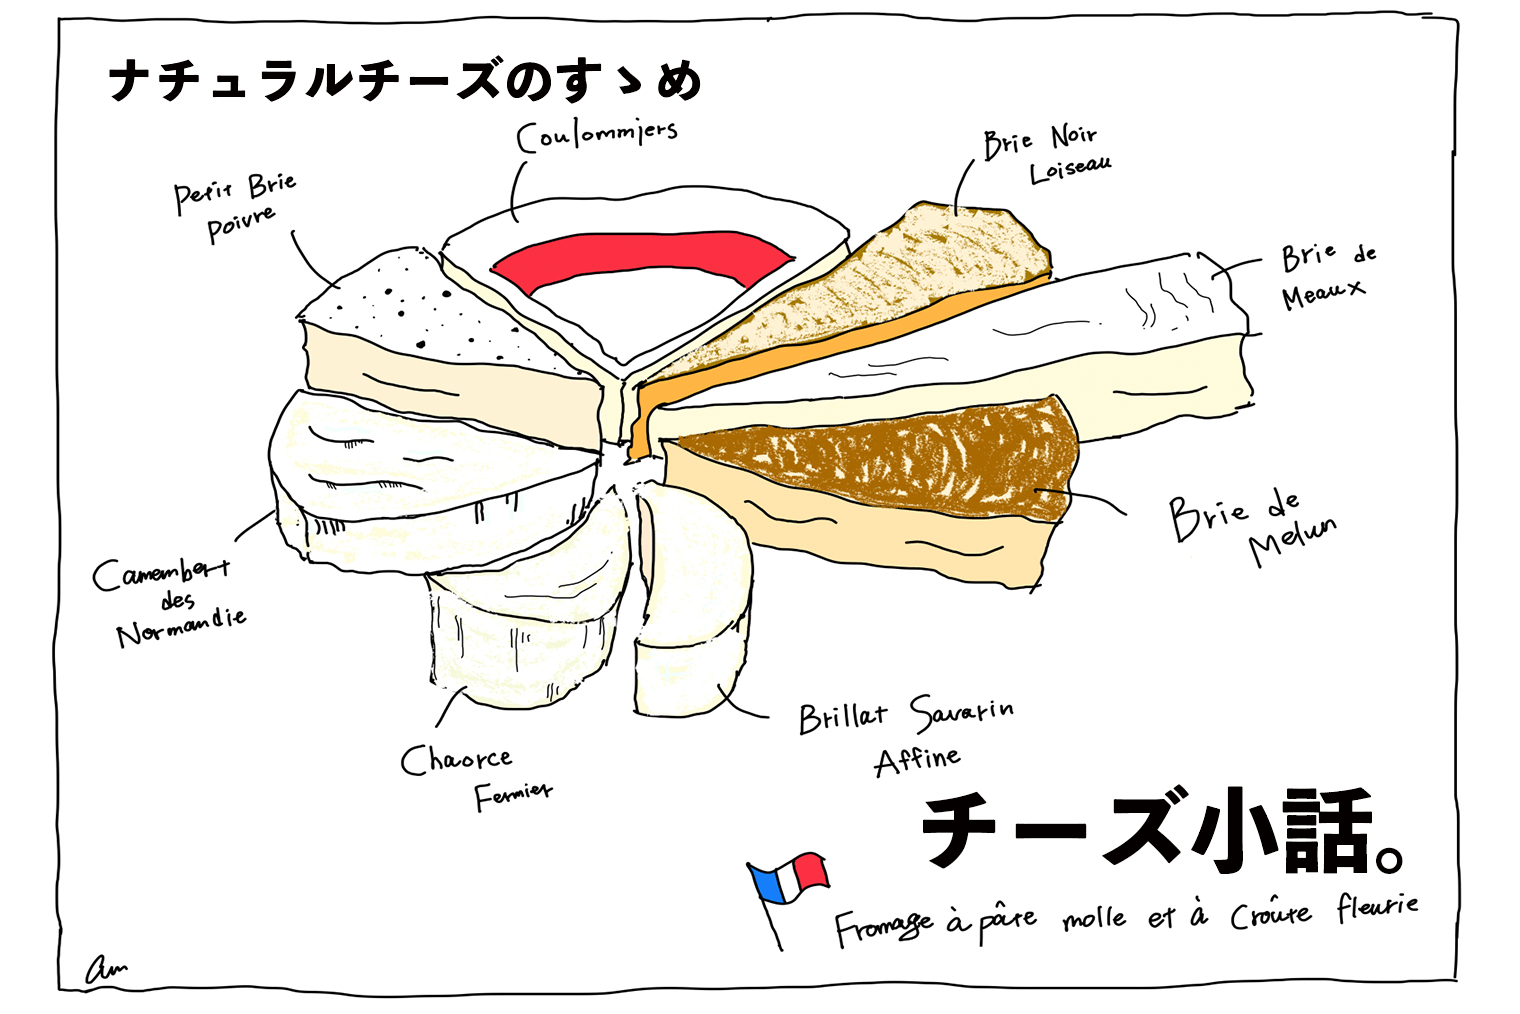 ナチュラルチーズのすゝめ
Coulommiers
Brie Noir
Loiseau
Petit Brie
Poivre
Brie de
Meaux
Brie de
Melun
Camembert
des
Normandie
Brillat Savarin
Affine
Chaorce
Fermier
チーズ小話。
Fromage à pâte molle et à Croûte fleurie
am